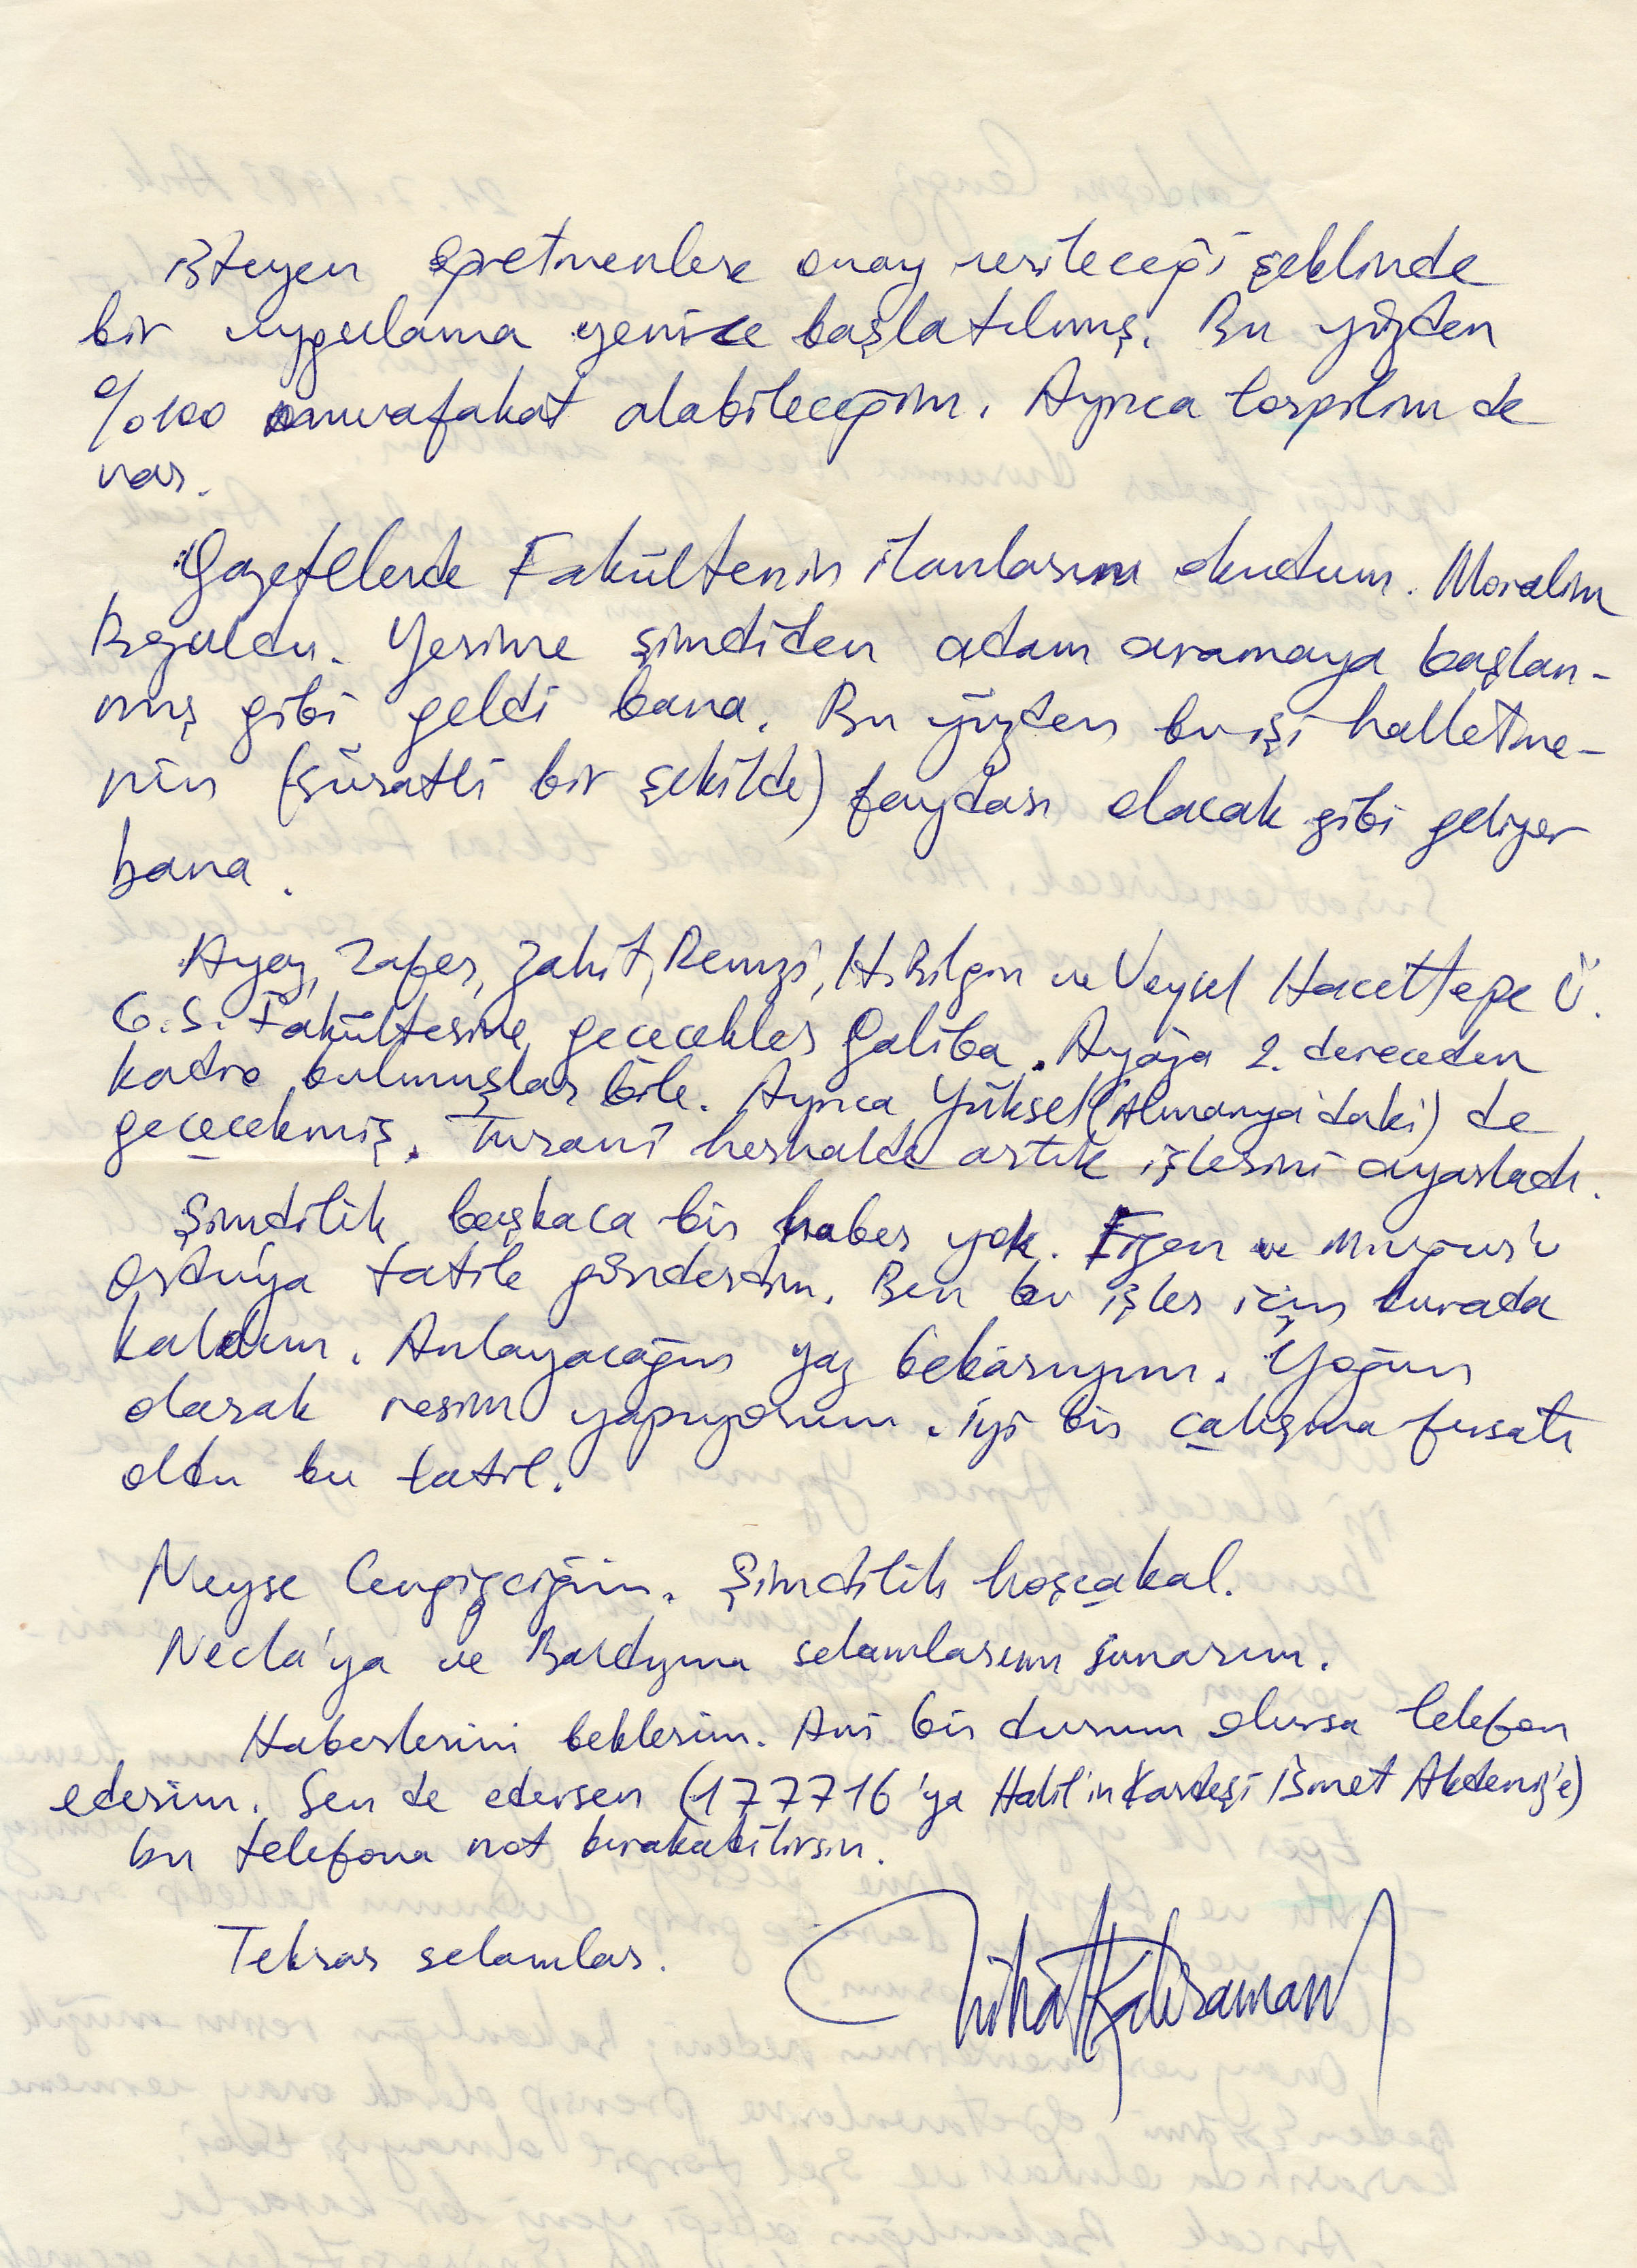 isteyen öğretmenlere onay verileceği şeklinde
bir uygulama yenice başlatılmış. Bu yüzden
%100 muvafakat alabileceğim. Ayrıca torpilim de
var.
Gazetelerde Fakültenin ilanlarını okudum. Moralim
Bozuldu. Yerime şimdiden adam aramaya başlan-
mış gibi geldi bana. Bu yüzden bu işi halletme-
nin (süratli bir şekilde) faydası olacak gibi geliyor
bana.
Ayaz, Zafer, Zahit, Remzi, H. Bilgin ve Veysel Hacettepe Ü.
G.S. Fakültesine geçecekler Galiba. Ayaza 2. dereceden
kadro bulmuşlar bile. Ayrıca Yüksel (Almanya'daki) de
geçecekmiş. Turani herhalde artık işlerini ayarladı.
Şimdilik başkaca bir haber yok. Figen ve 
Ordu'ya tatile gönderdim. Ben bu işler için burada
kaldım. Anlayacağın yaz bekârıyım. Yoğun
olarak resim yapıyorum. iyi bir çalışma fırsatı
oldu bu tatil.
Neyse Cengizciğim. Şimdilik hoşçakal.
Necla'ya ve selamlarımı sunarım.
Haberlerini beklerim. Ani bir durum olursa telefon
ederim. Sen de edersen (177716'ya Halil'in Kardeşi İsmet Akdeniz'e)
bu telefona not bırakabilirsin.
Tekrar selamlar.
Nihat Kahraman